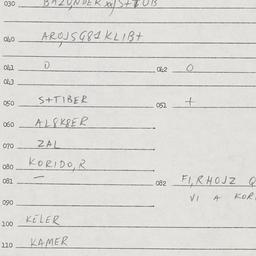 030
040 AROJSG81KLIBT
041 0 042 0
043
050 S+TIBER 051 +
060 AL8K8ER
070 ZAL
080 KORIDO,R
081 — 082 FI,RHOJZ
VI A KOR
090
100 KELER
110 KAMER